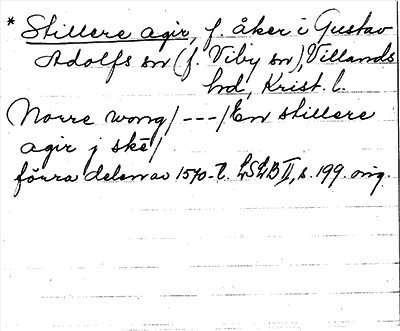 * Stillere agir, f. åker i Gustav
Adolfs sn (f. Viby sn), Villands
hd, Krist. l.
Norre wong / --- / En stillere
agir j skê /
förra delen av 1570-t. LSLB II, s. 199. orig.